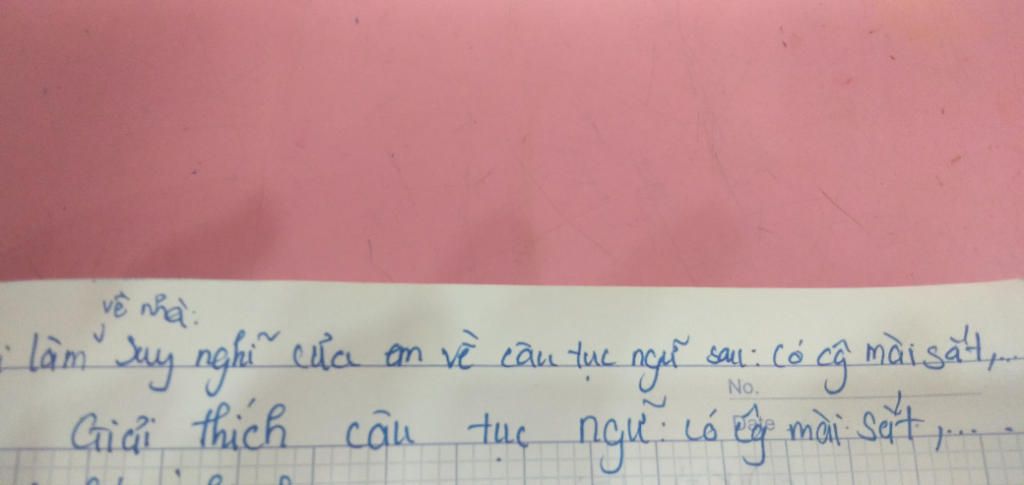 về nhà:
làm suy nghĩ của em về câu tục ngữ sau: Có cg̃ mài sắt,...
No.
Giải thích câu tục ngữ: có cg̃ mài sắt,....